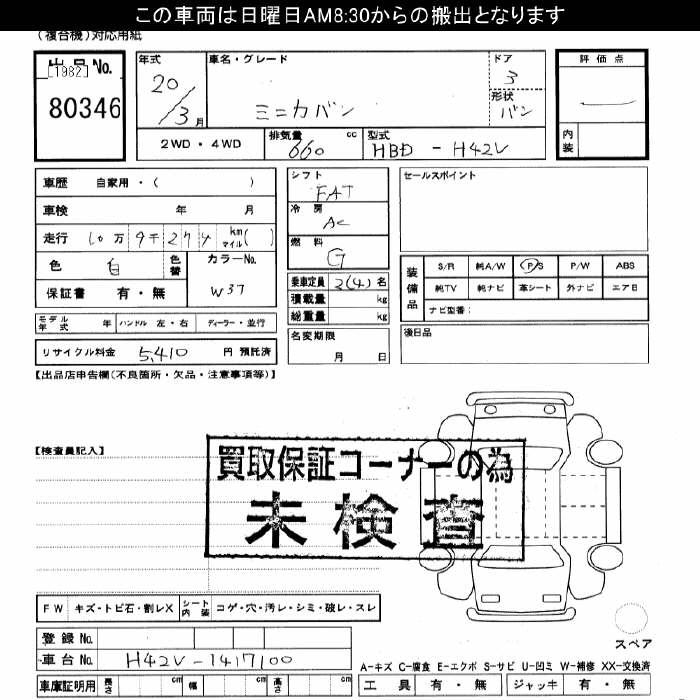 この車両は日曜日AM8:30からの搬出となります
(複合機)対応用紙
出品No.
[1982]
80346
年式 20/3月
車名・グレード ミニカバン
ドア 3
形状 バン
評価点
内装
2WD・4WD
排気量 660 cc
型式 HBD - H42V
車歴 自家用・( )
車検 年 月
走行 10万9千274 km マイル( )
色 白 色替
カラーNo. W37
保証書 有・無
シフト FAT
冷房 AC
燃料 G
乗車定員 2(4)名
積載量 kg
総重量 kg
名変期限 月 日
セールスポイント
装備品
S/R 純A/W P/S P/W ABS
純TV 純ナビ 革シート 外ナビ エアB
ナビ型番:
後日品
モデル年式 年 ハンドル 左・右 ディーラー・並行
リサイクル料金 5,410 円 預託済
【出品店申告欄(不良箇所・欠品・注意事項等)】
【検査員記入】
買取保証コーナーの為
未検査
FW キズ・トビ石・割レX シート内装 コゲ・穴・汚レ・シミ・破レ・スレ
登録No.
車台No. H42V-1417100
車庫証明用 長さ cm 幅 cm 高さ cm
スペア
A-キズ C-腐食 E-エクボ S-サビ U-凹ミ W-補修 XX-交換済
工具 有・無 ジャッキ 有・無